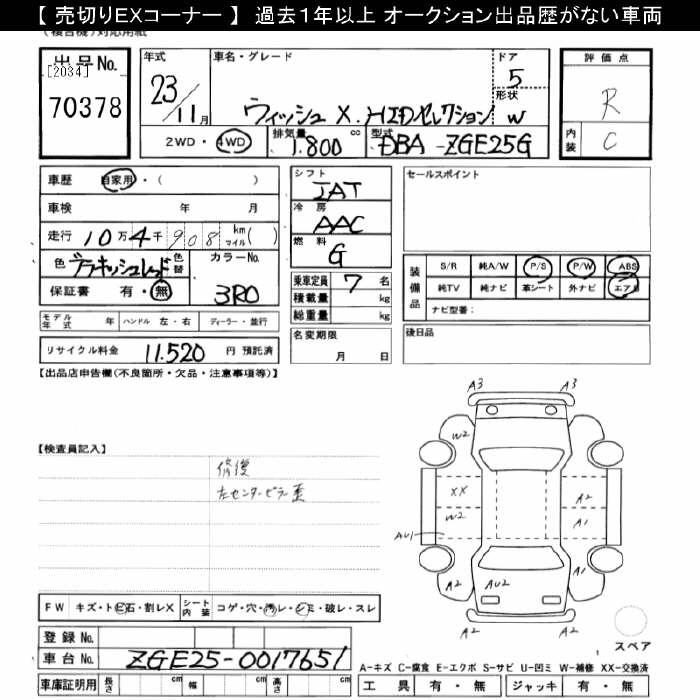 【 売切りEXコーナー 】 過去1年以上 オークション出品歴がない車両
出品No.
[2034]
70378
年式
23/11月
車名・グレード
ウィッシュ X. HIDセレクション
ドア
5
形状
W
評価点
R
内装
C
2WD・4WD
排気量
1.800 cc
型式
DBA-ZGE25G
車歴
自家用・( )
車検 年 月
走行 10万4千908 km マイル( )
色 ブラキッシュレッド
色替
カラーNo.
3R0
保証書 有・無
シフト
IAT
冷房
AAC
燃料
G
乗車定員 7 名
積載量 kg
総重量 kg
セールスポイント
装備品
S/R 純A/W P/S P/W ABS
純TV 純ナビ 革シート 外ナビ エアB
ナビ型番:
モデル年式 年 ハンドル 左・右 ディーラー・並行
リサイクル料金 11.520 円 預託済
名変期限
月 日
後日品
【出品店申告欄(不良箇所・欠品・注意事項等)】
【検査員記入】
修復
左センターピラー歪
A3 A3
W2
XX
W2
AU1
A2
A1
A1
A2 AU2 A2
A2
スペア
FW キズ・トビ石・割レX
シート内装 コゲ・穴・汚レ・シミ・破レ・スレ
登録No.
車台No. ZGE25-0017651
A-キズ C-腐食 E-エクボ S-サビ U-凹ミ W-補修 XX-交換済
車庫証明用 長さ cm 幅 cm 高さ cm
工具 有・無 ジャッキ 有・無